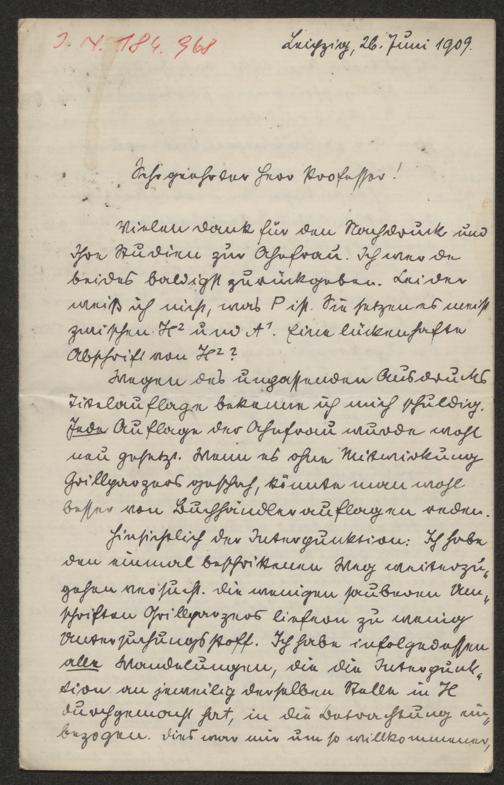 J. N. 184.968
Leipzig, 26. Juni 1909.
Sehr geehrter Herr Professor!
Vielen Dank für den Nachdruck und
Ihre Studien zur Ahnfrau. Ich werde
beides baldigst zurückgeben. Leider
weiß ich nicht, was P ist. Sie setzen es meist
zwischen H² und A¹. Eine lückenhafte
Abschrift von H²?
Wegen des unpassenden Ausdrucks
Titelauflage bekenne ich mich schuldig.
Jede Auflage der Ahnfrau wurde wohl
neu gesetzt. Wenn es ohne Mitwirkung
Grillparzers geschah, könnte man wohl
besser von Buchhändlerauflagen reden.
Hinsichtlich der Interpunktion: Ich habe
den einmal beschrittenen Weg weiterzu-
gehen versucht. Die wenigen sauberen Um-
schriften Grillparzers liefern zu wenig
Untersuchungsstoff. Ich habe infolgedessen
alle Wandelungen, die die Interpunk-
tion an jeweilig derselben Stelle in H
durchgemacht hat, in die Betrachtung ein-
bezogen. Dies war mir um so willkommener,